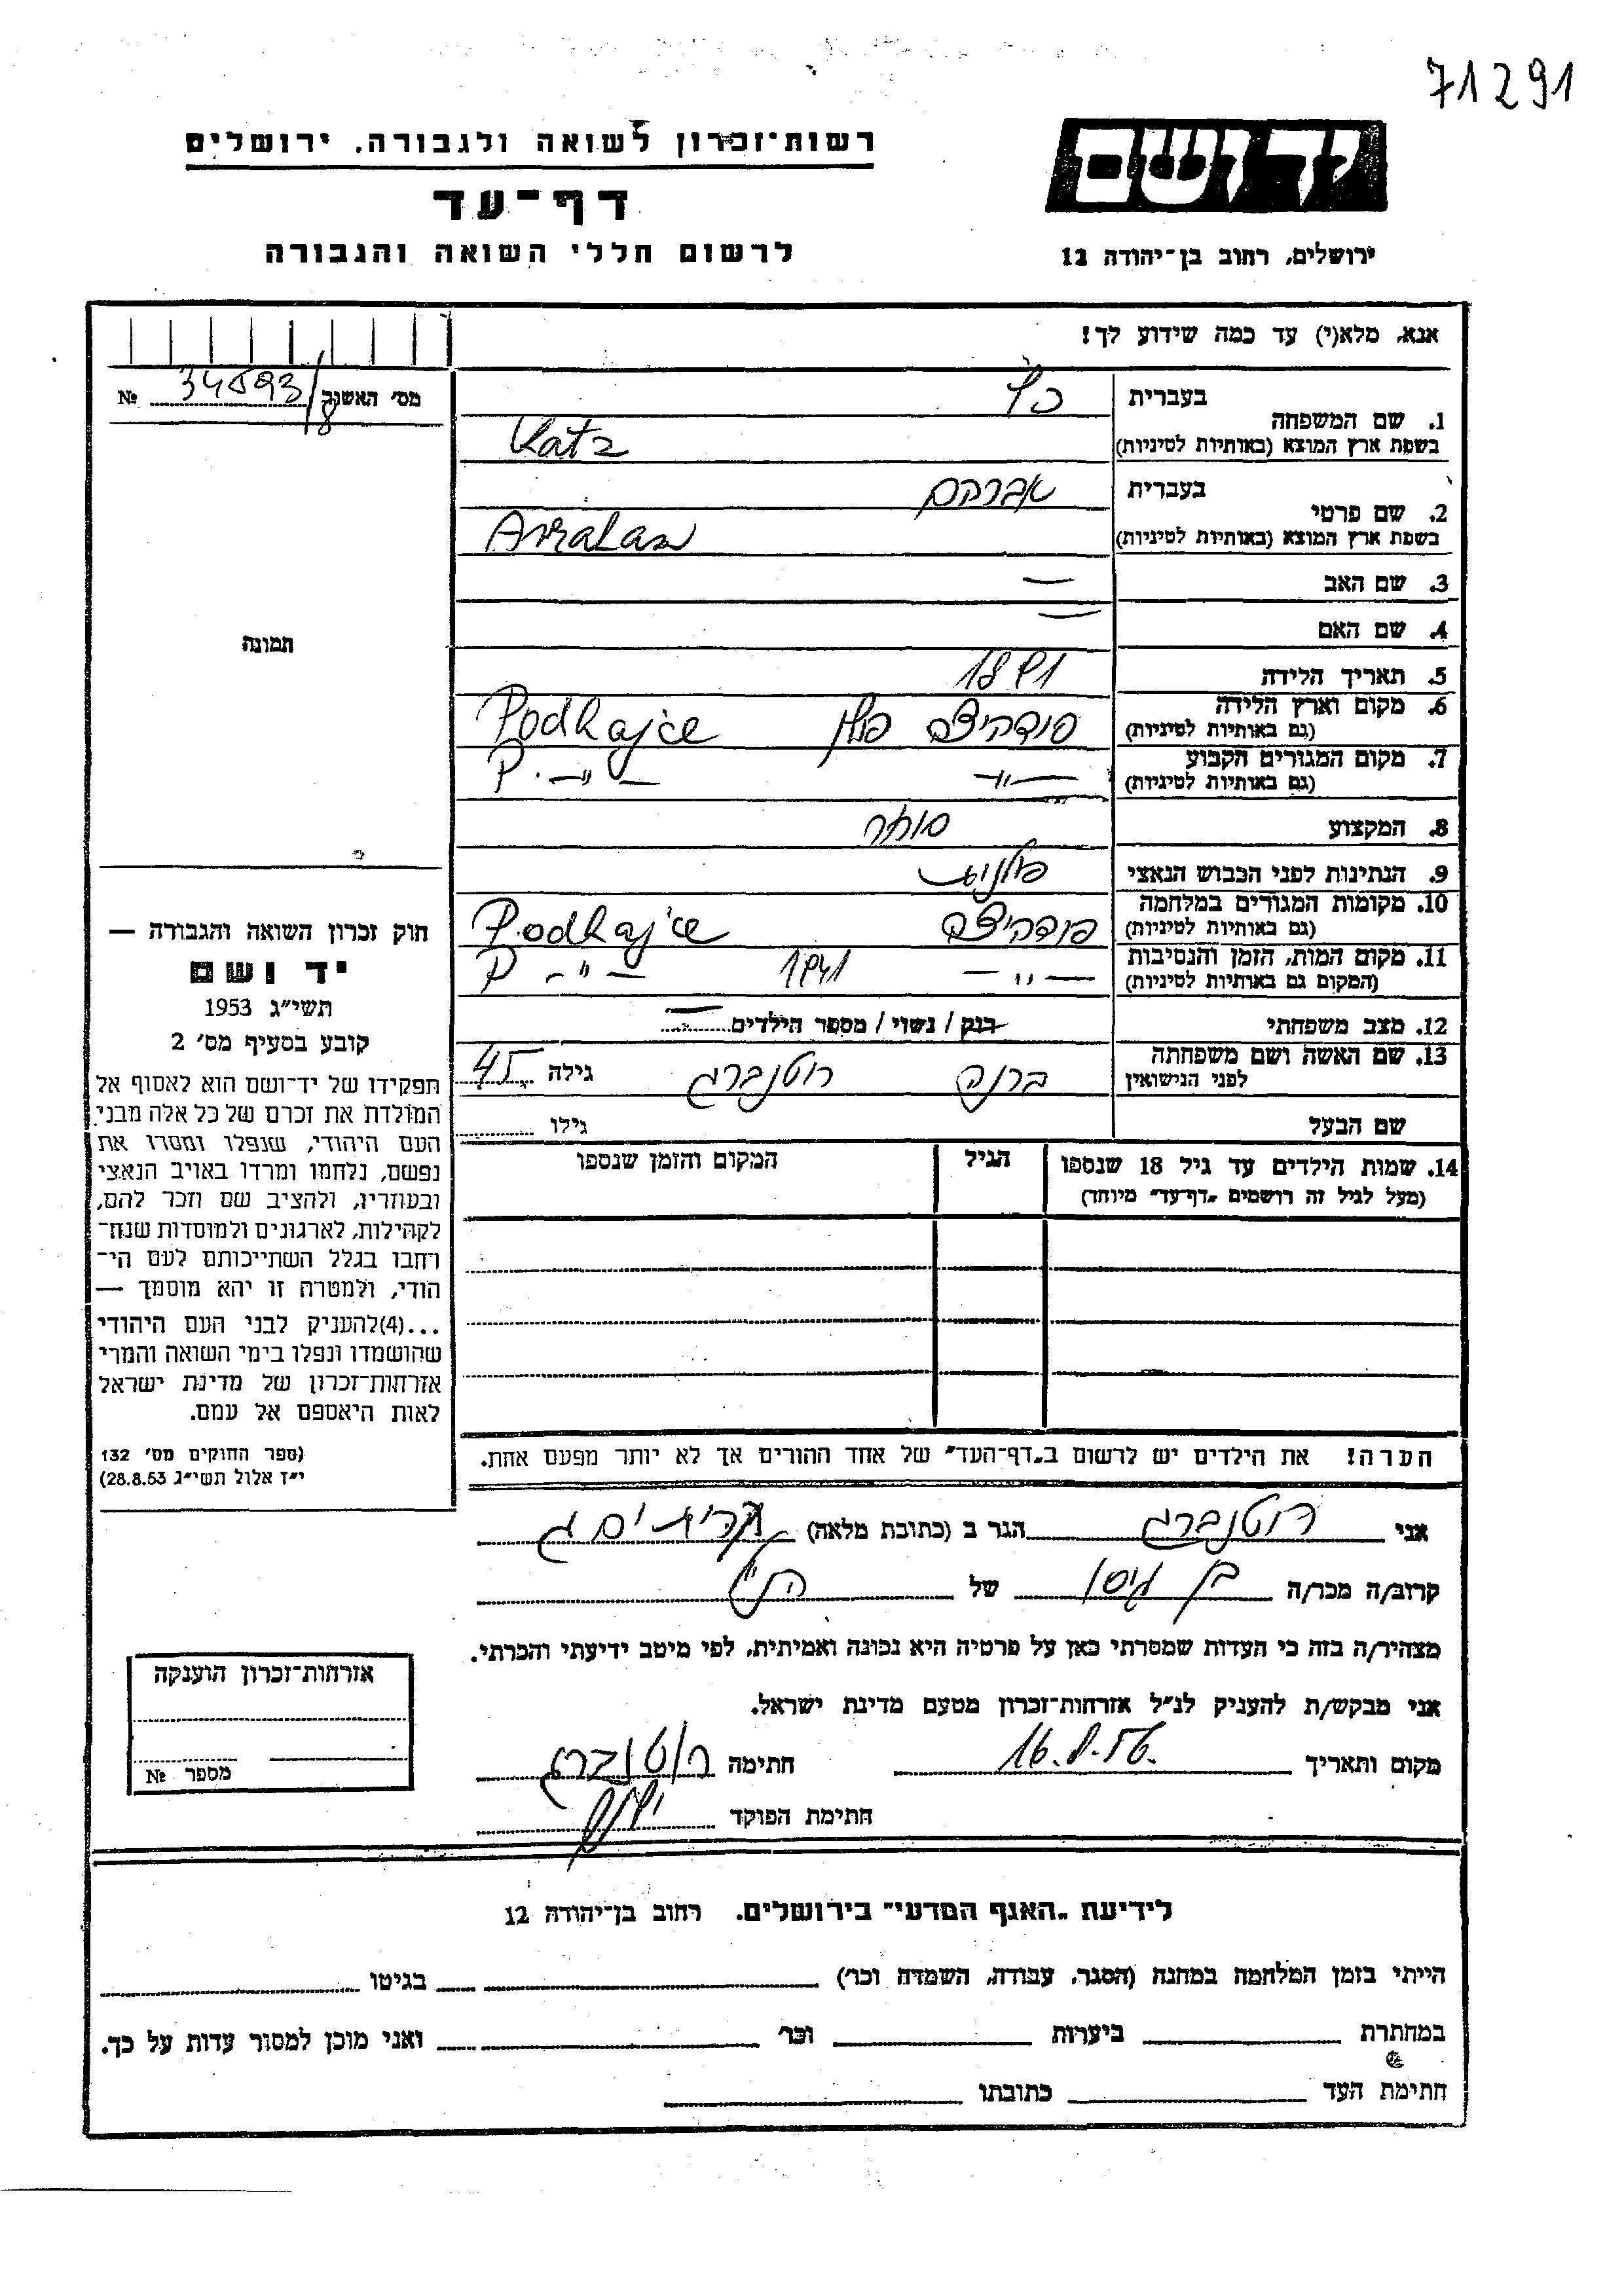 71291
יד ושם
רשות־זכרון לשואה ולגבורה, ירושלים
דף־עד
לרשום חללי השואה והגבורה
ירושלים, רחוב בן־יהודה 12
אנא, מלא(י) עד כמה שידוע לך!
מס׳ האשנב 34593/8 №
1. שם המשפחה
בעברית כץ
בשפת ארץ המוצא (באותיות לטיניות) Katz
2. שם פרטי
בעברית אברהם
בשפת ארץ המוצא (באותיות לטיניות)
3. שם האב —
4. שם האם —
תמונה
5. תאריך הלידה 1891
6. מקום וארץ הלידה
(גם באותיות לטיניות) פודהיצה פולין Podhajce
7. מקום המגורים הקבוע
(גם באותיות לטיניות) —״— P. —״—
8. המקצוע סוחר
9. הנתינות לפני הכבוש הנאצי פולנית
10. מקומות המגורים במלחמה
(גם באותיות לטיניות) פודהיצה Podhajce
11. מקום המות, הזמן והנסיבות
(המקום גם באותיות לטיניות) —״— 1941 P —״—
12. מצב משפחתי רווק / נשוי / מספר הילדים —
13. שם האשה ושם משפחתה
לפני הנישואין ברנה רוטנברג גילה 45
שם הבעל גילו
14. שמות הילדים עד גיל 18 שנספו
(מעל לגיל זה רושמים „דף־עד״ מיוחד)
הגיל
המקום והזמן שנספו
חוק זכרון השואה והגבורה —
יד ושם
תשי״ג 1953
קובע בסעיף מס׳ 2
תפקידו של יד־ושם הוא לאסוף אל
המולדת את זכרם של כל אלה מבני
העם היהודי, שנפלו ומסרו את
נפשם, נלחמו ומרדו באויב הנאצי
ובעוזריו, ולהציב שם וזכר להם,
לקהילות, לארגונים ולמוסדות שנח־
רחבו בגלל השתייכותם לעם הי־
הודי, ולמטרה זו יהא מוסמך —
...(4)להעניק לבני העם היהודי
שהושמדו ונפלו בימי השואה והמרי
אזרחות־זכרון של מדינת ישראל
לאות היאספם אל עמם.
(ספר החוקים מס׳ 132
י״ז אלול תשי״ג 28.8.53)
הערה! את הילדים יש לרשום ב„דף־העד״ של אחד ההורים אך לא יותר מפעם אחת.
אני רוטנברג הגר ב (כתובת מלאה)
קרוב/ה מכר/ה בן גיסו של הנ״ל
מצהיר/ה בזה כי העדות שמסרתי כאן על פרטיה היא נכונה ואמיתית, לפי מיטב ידיעתי והכרתי.
אני מבקש/ת להעניק לנ״ל אזרחות־זכרון מטעם מדינת ישראל.
מקום ותאריך 16.8.56. חתימה רוטנברג
חתימת הפוקד
אזרחות־זכרון הוענקה
מספר №
לידיעת „האגף המדעי״ בירושלים. רחוב בן־יהודה 12
הייתי בזמן המלחמה במחנה (הסגר, עבודה, השמדה וכו׳) בגיטו
במחתרת ביערות וכו׳ ואני מוכן למסור עדות על כך.
חתימת העד כתובתו